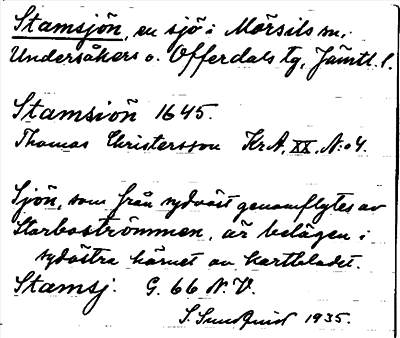 Stamsjön, en sjö i Mörsils sn,
Undersåkers o. Offerdals tg, Jämtl. l.
Stamsiön 1645.
Thomas Christersson KrA, XX, N:o 4.
Sjön, som från sydväst genomflytes av
Storboströmmen, är belägen i
sydöstra hörnet av kartbladet.
Stamsj. G. 66 N. V.
S. Sundquist 1935.